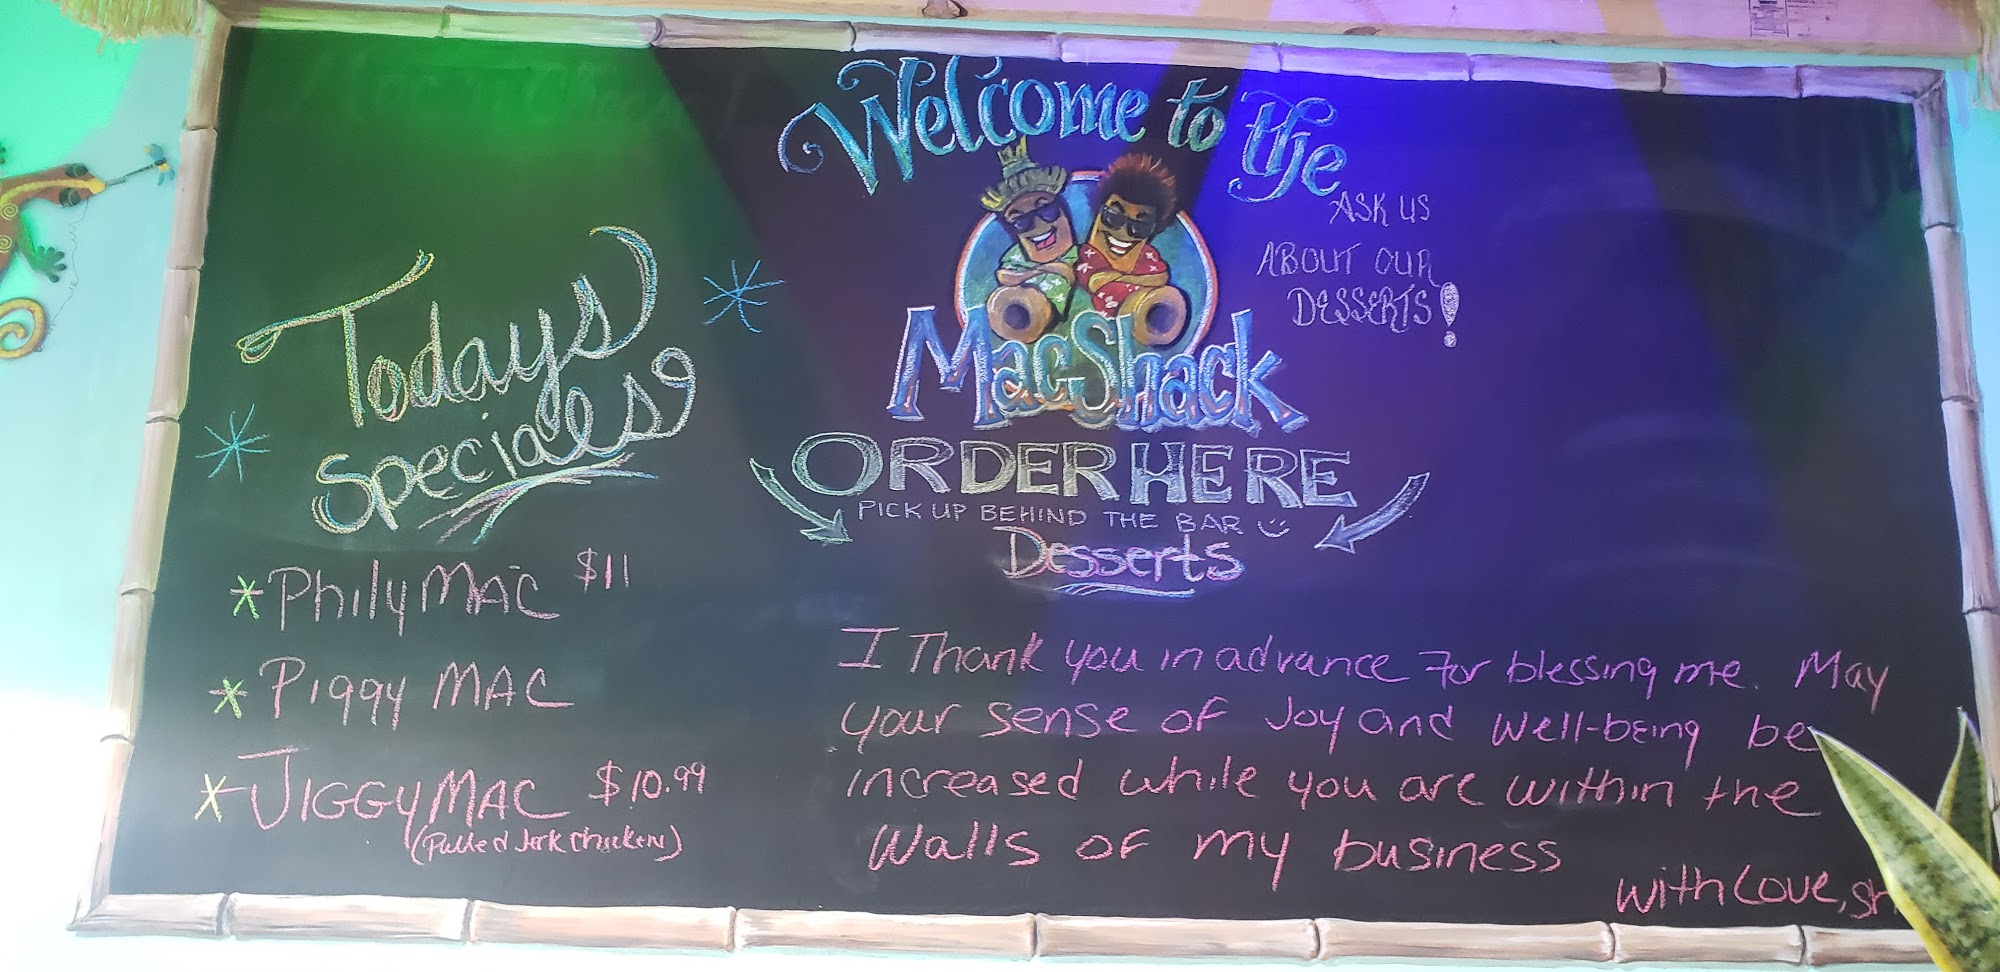 Welcome to the
MacShack
ORDER HERE
PICK UP BEHIND THE BAR
Desserts
ASK US
ABOUT OUR
DESSERTS!
Todays
Specials
* Philly MAC $11
* Piggy MAC
* JIGGY MAC $10.99
(Pulled Jerk Chicken)
I Thank you in advance For blessing me. May
your sense of Joy and well-being be
increased while you are within the
walls of my business
with Love,